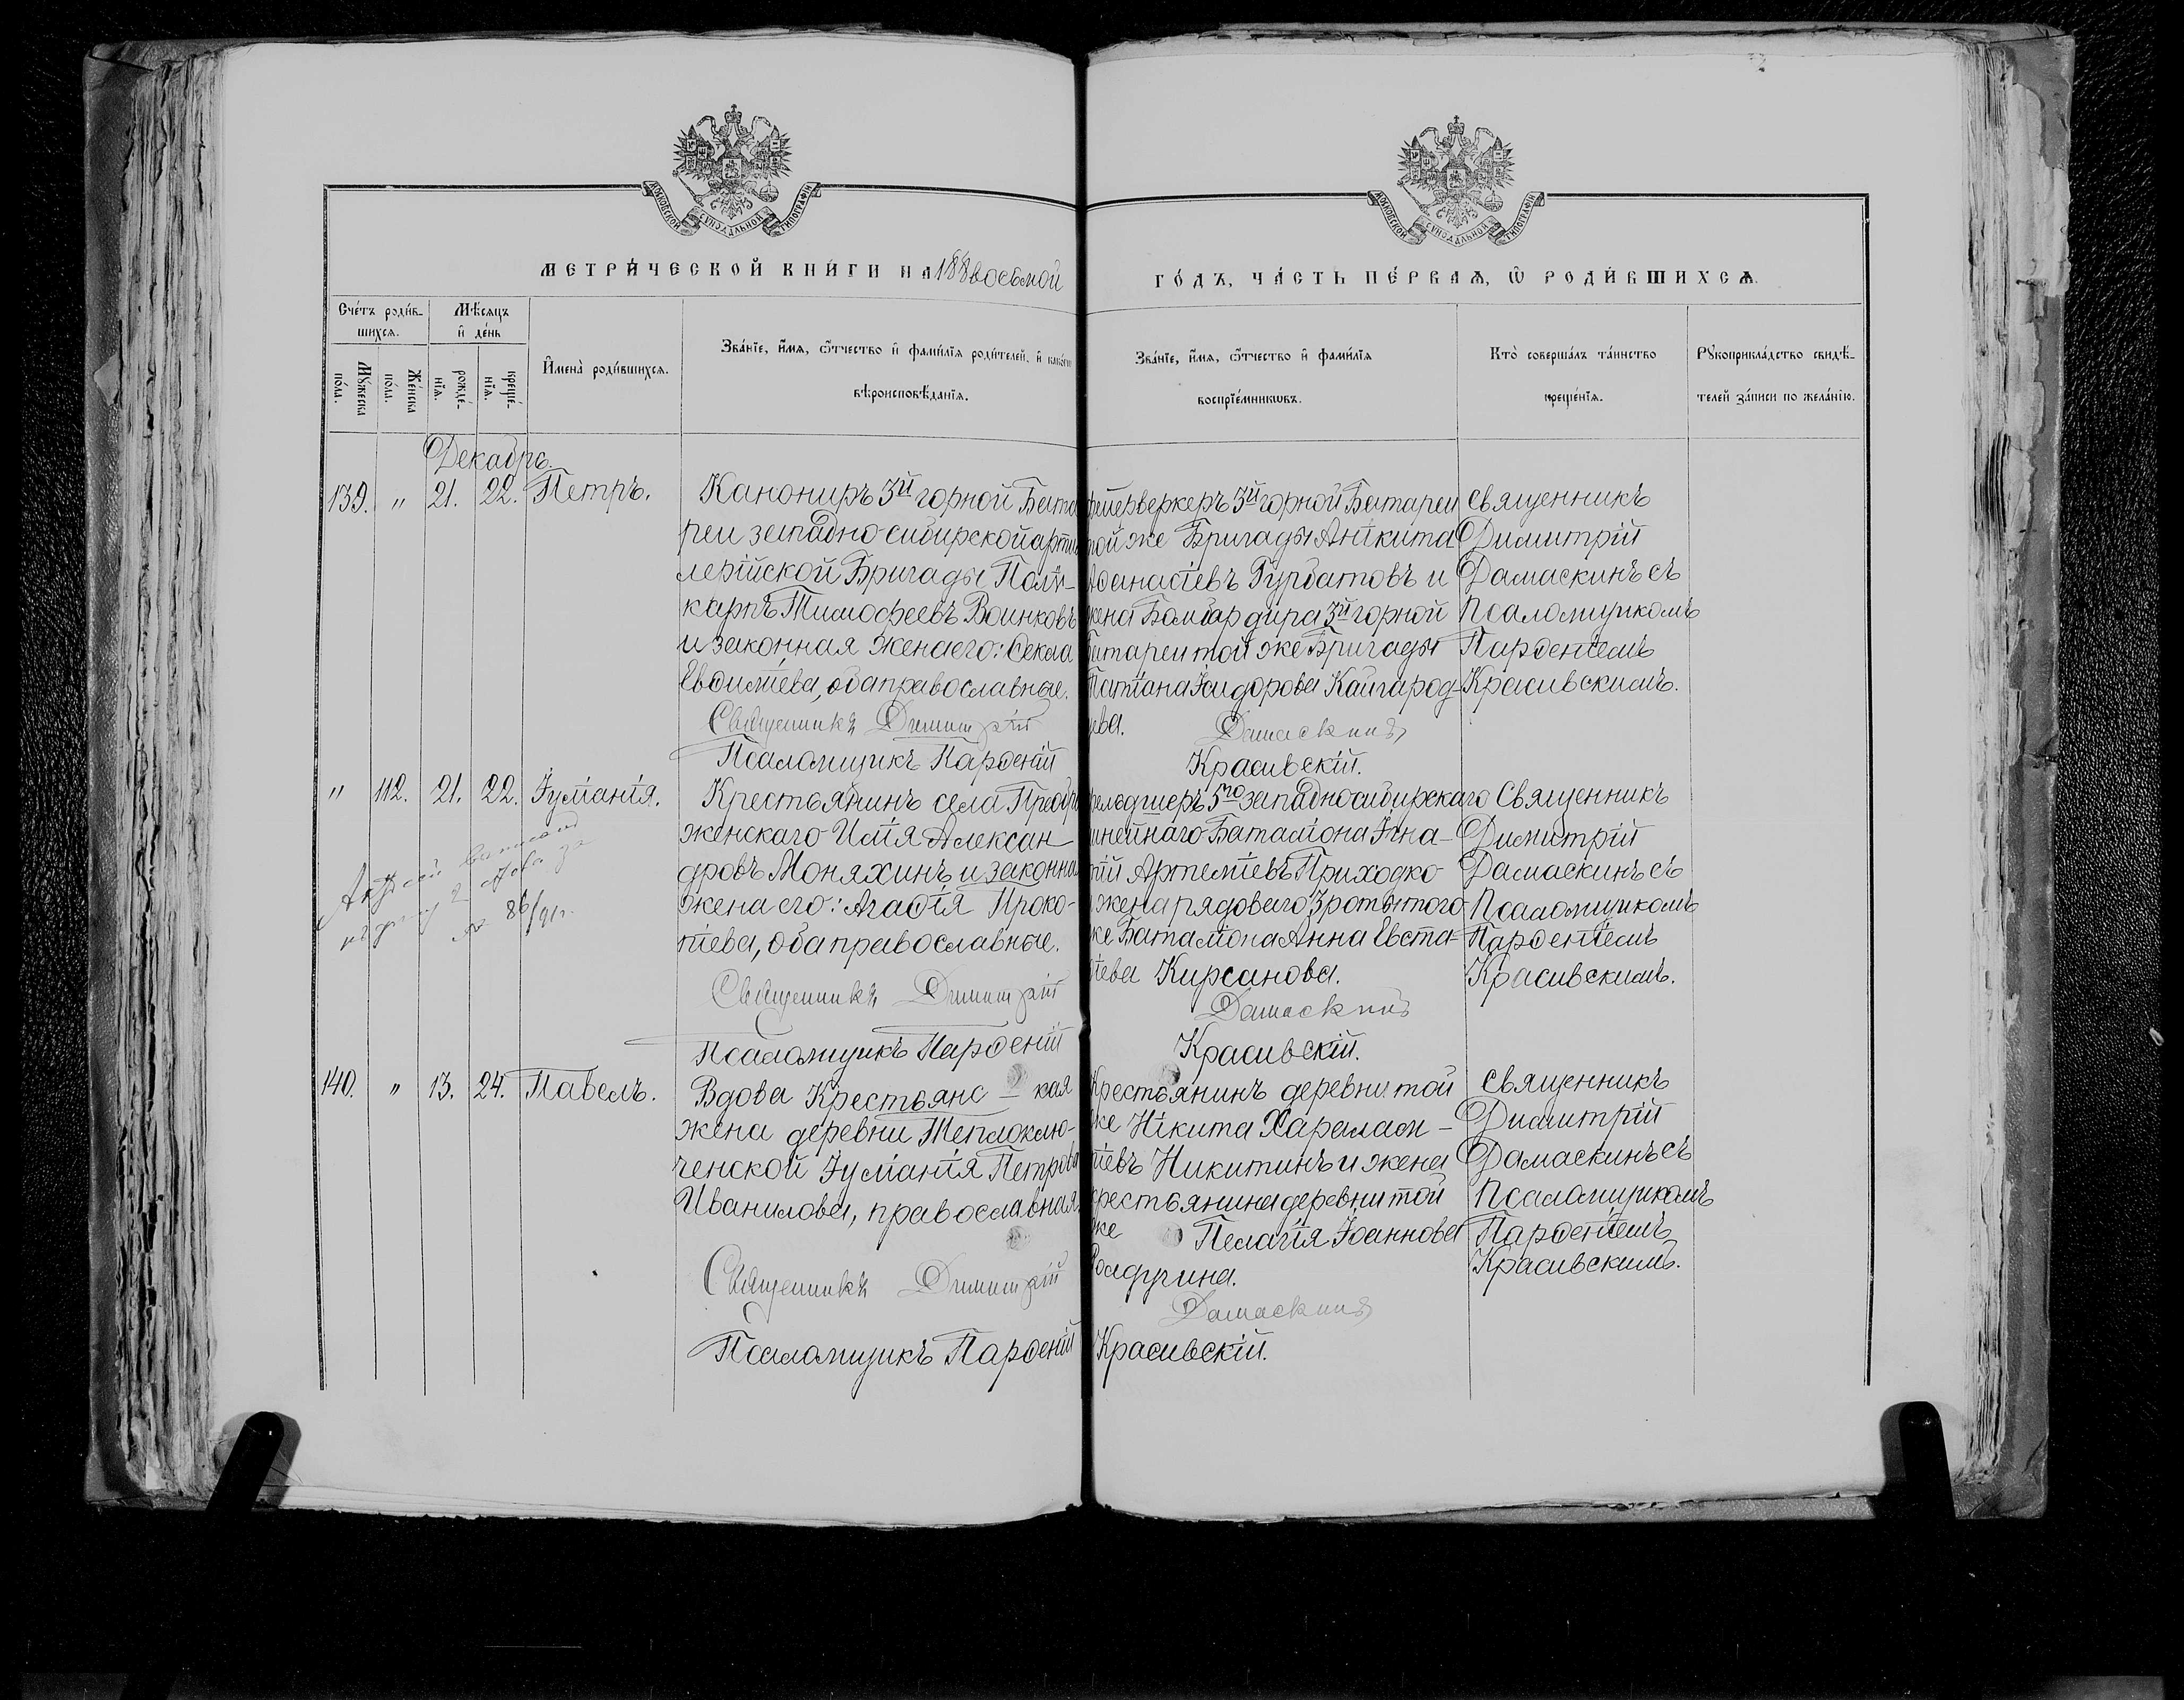 МОСКОВСКОЙ СѴНОДАЛЬНОЙ ТИПОГРАФІИ
МОСКОВСКОЙ СѴНОДАЛЬНОЙ ТИПОГРАФІИ
МЕТРИ́ЧЕСКОЙ КНИ́ГИ НА 188восьмой
ГО́ДЪ, ЧА́СТЬ ПЕ́РВАѦ, Ѽ РОДИ́ВШИХСѦ.
Сче́тъ роди́в-
шихсѧ.
Мѣ́сѧцъ
и҆ де́нь
Мꙋ́жеска
по́ла.
Же́нска
по́ла.
рожде́-
нїѧ.
креще́-
нїѧ.
И҆мена̀ роди́вшихсѧ.
Зва́нїе, и҆́мѧ, ѻ҆́тчество и҆ фами́лїѧ роди́телей, и҆ како́гѡ
вѣроисповѣ́данїѧ.
Зва́нїе, и҆́мѧ, ѻ҆́тчество и҆ фами́лїѧ
воспрїе́мникѡвъ.
Кто̀ соверша́лъ та́инство
креще́нїѧ.
Рꙋкоприкла́дство свидѣ́-
телей за́писи по жела́нїю.
Декабрь.
139. " 21. 22. Петръ.
Канониръ 3й горной Бата
реи западно сибирской арти
лерійской Бригады Поли-
карпъ Тимофеевъ Воинковъ
и законная жена его: Ѳекла
Евѳиміева, оба православные.
Священникъ Димитрій
Псаломщикъ Парѳеній
фейерверкеръ 3й горной Батареи
той же Бригады Аникита
Аѳанасіевъ Гурбатовъ и
жена Бомбардира 3й горной
Батареи той же Бригады
Татіана Ісидорова Кайгород-
цева.
Дамаскинъ
Красивскій.
Священникъ
Димитрій
Дамаскинъ съ
Псаломщикомъ
Парѳеніемъ
Красивскимъ.
" 112. 21. 22. Іуліанія.
№ 86/91г.
Крестьянинъ села Преобра
женскаго Илія Алексан-
дровъ Моняхинъ и законная
жена его: Агаѳія Проко-
піева, оба православные.
Священникъ Димитрій
Псаломщикъ Парѳеній
фельдшеръ 5го западносибирскаго
линейнаго Баталіона Игна-
тій Артеміевъ Приходко
и жена рядоваго 3 роты того
же Баталіона Анна Евста-
ѳіева Кирсанова.
Дамаскинъ
Красивскій.
Священникъ
Димитрій
Дамаскинъ съ
Псаломщикомъ
Парѳеніемъ
Красивскимъ.
140. " 13. 24. Павелъ.
Вдова Крестьянс — кая
жена деревни Теплоклю-
ченской Іуліанія Петрова
Иванилова, православная.
Священникъ Димитрій
Псаломщикъ Парѳеній
Крестьянинъ деревни той
же Никита Харалам-
піевъ Никитинъ и жена
крестьянина деревни той
же Пелагія Іоаннова
Дамаскинъ
Красивскій.
Священникъ
Димитрій
Дамаскинъ съ
Псаломщикомъ
Парѳеніемъ
Красивскимъ.